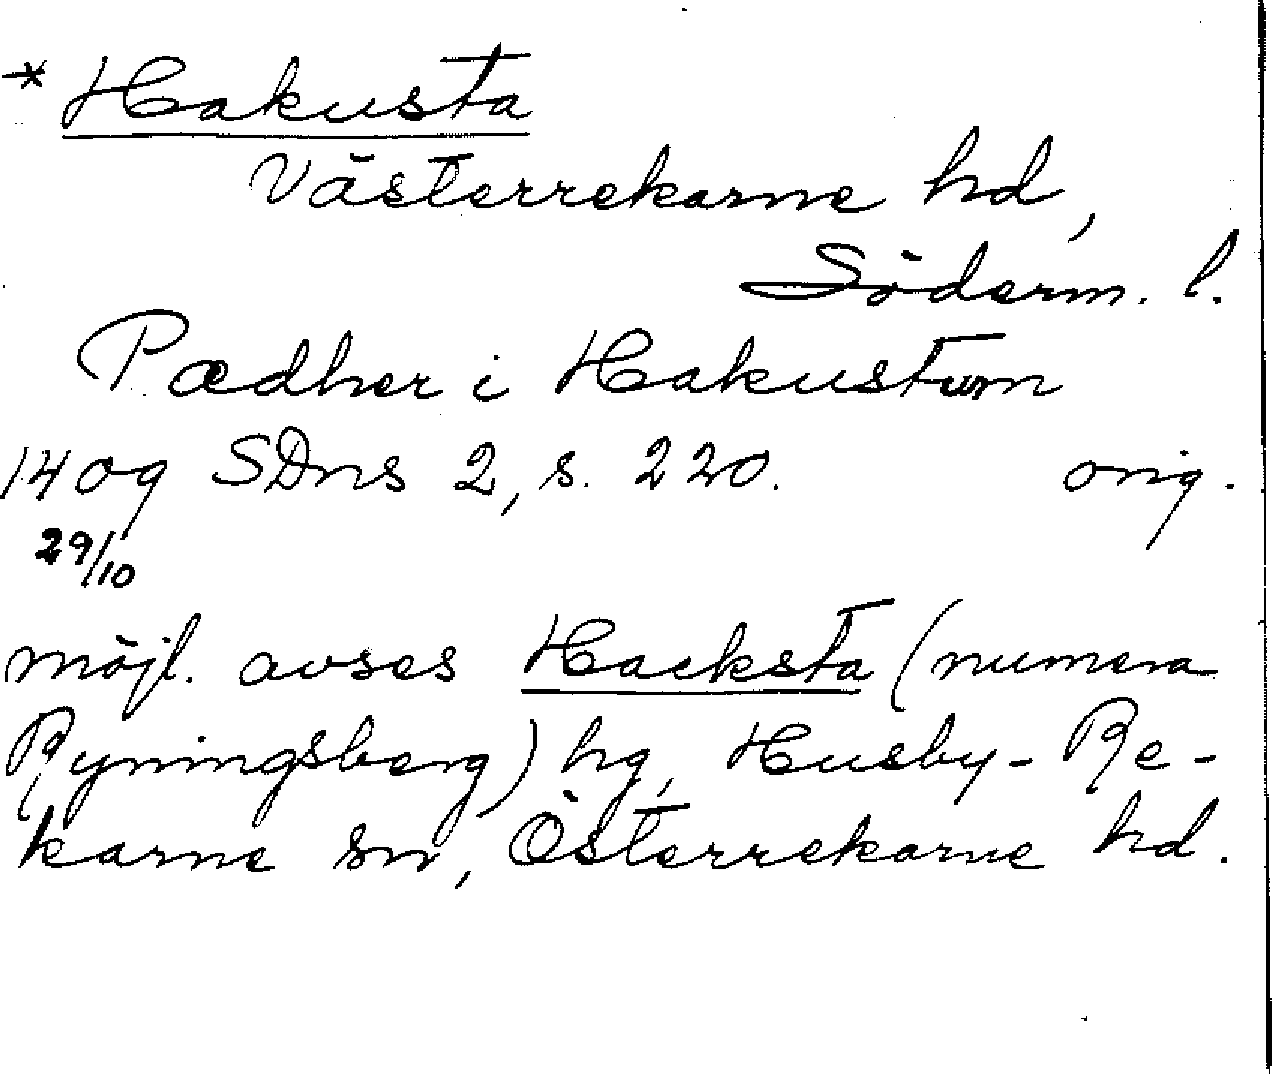 * Hakusta
Västerrekarne hd,
Söderm. l.
Pædher i Hakustum
1409 SDns 2, s. 220. orig.
29/10
möjl. avses Hacksta (numera
Ryningsberg) hg, Husby-Re-
karne sn, Österrekarne hd.